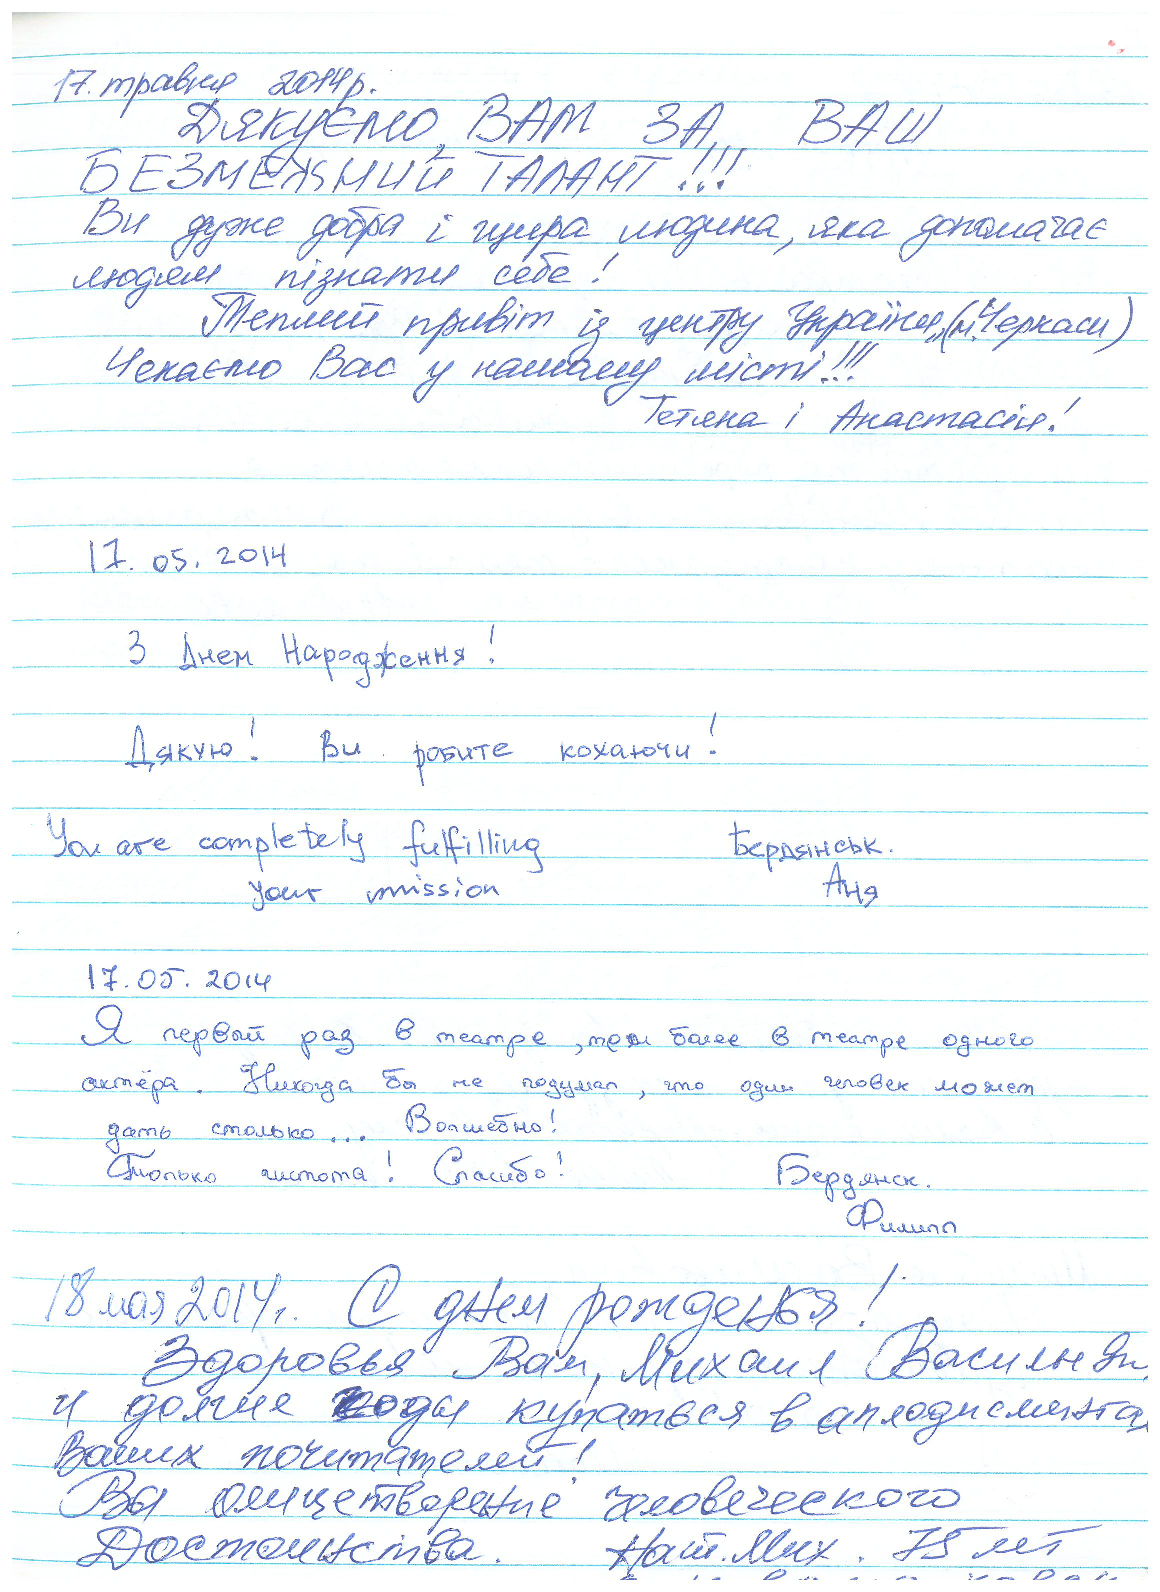 17. травня 2014р.
ДЯКУЄМО ВАМ ЗА ВАШ
БЕЗМЕЖНИЙ ТАЛАНТ!!!
Ви дуже добра і щира людина, яка допомагає
людям пізнати себе!
Теплий привіт із центру України (м. Черкаси)
Чекаємо Вас у нашому місті!!!
Тетяна і Анастасія!
17.05.2014
З Днем Народження!
Дякую! Ви робите кохаючи!
You are completely fulfilling Бердянськ.
your mission Аня
17.05.2014
Я первый раз в театре, тем более в театре одного
актёра. Никогда бы не подумал, что один человек может
дать столько... Волшебно!
Только чистота! Спасибо! Бердянск.
Филипп
18 мая 2014г. С днем рожденья!
Здоровья Вам, Михаил
и долгие годы купаться в аплодисментах
Ваших почитателей!
Вы олицетворение Человеческого
Достоинства. Нат. Мих. 75 лет